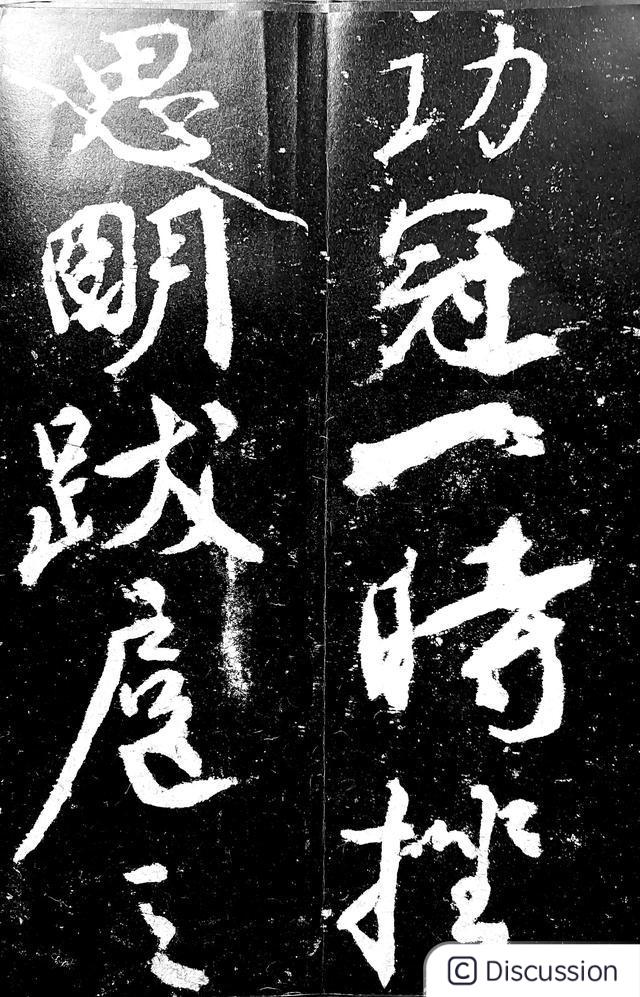 功冠一時挫
思明跋扈之
Discussion